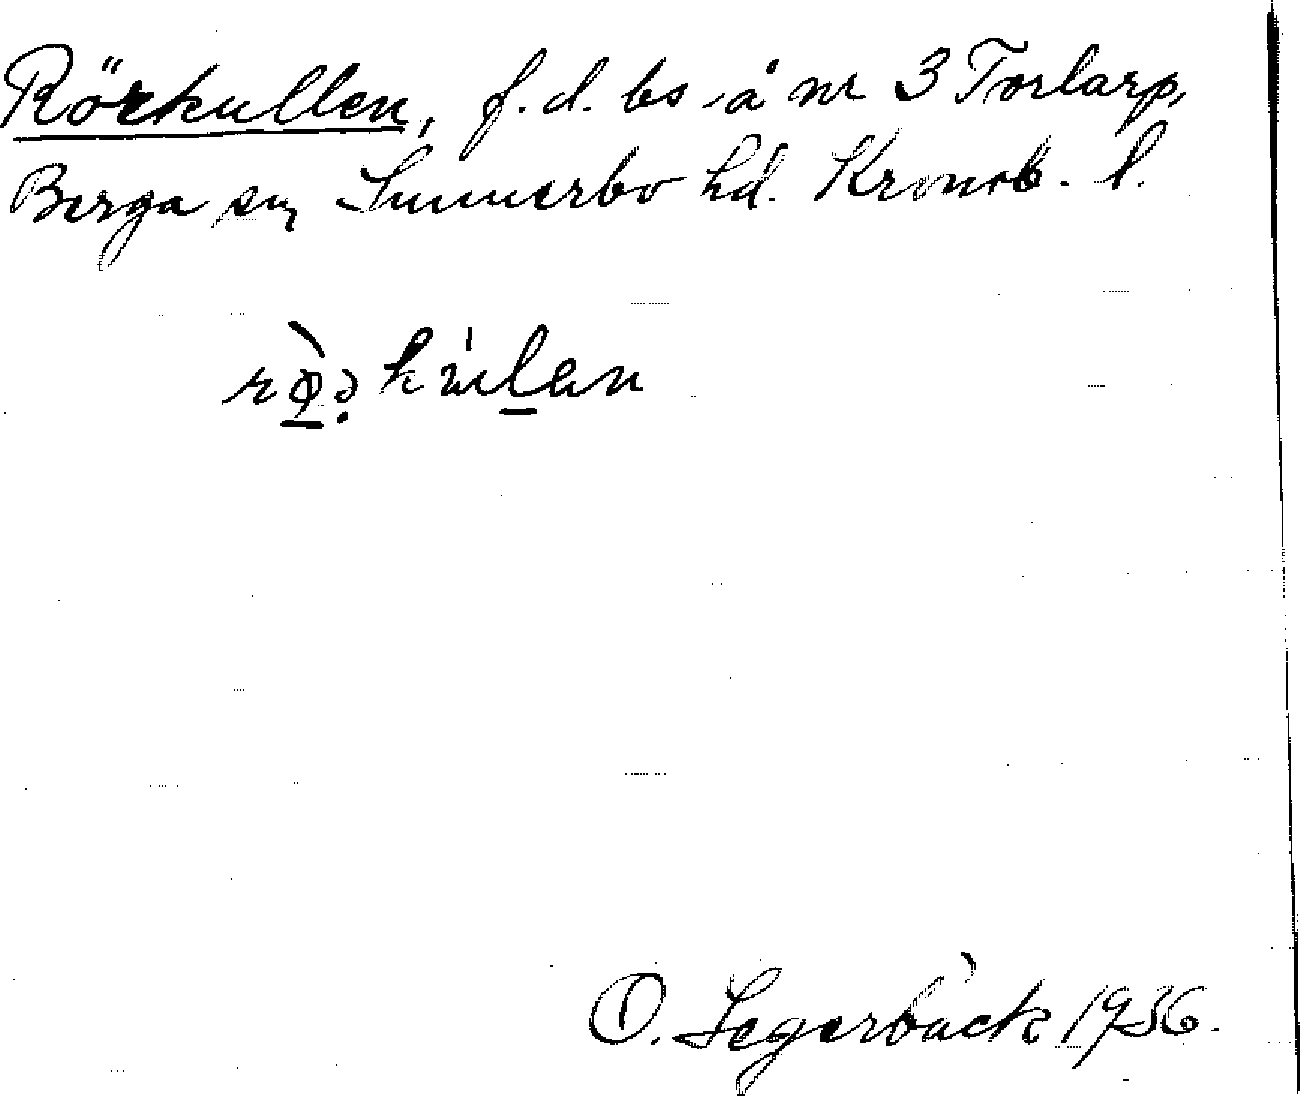 Rörkullen, f.d. bs å nr 3 Torlarp,
Berga sn, Sunnerbo hd. Kronob. l.
O. Segerbäck 1936.